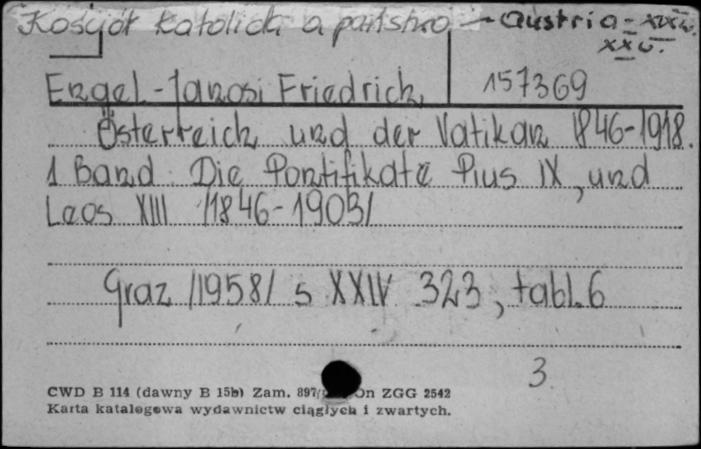 Kościół katolicki a państwo – Austria – XIX w.
XX w.
Engel-Janosi Friedrich, 157369
Österreich und der Vatikan 1846-1918.
1 Band. Die Pontifikate Pius IX, und
Leos XIII /1846-1903/
Graz /1958/ s XXIV 323, tabl. 6
3.
CWD B 114 (dawny B 15b) Zam. 897/ On ZGG 2542
Karta katalogowa wydawnictw ciągłych i zwartych.